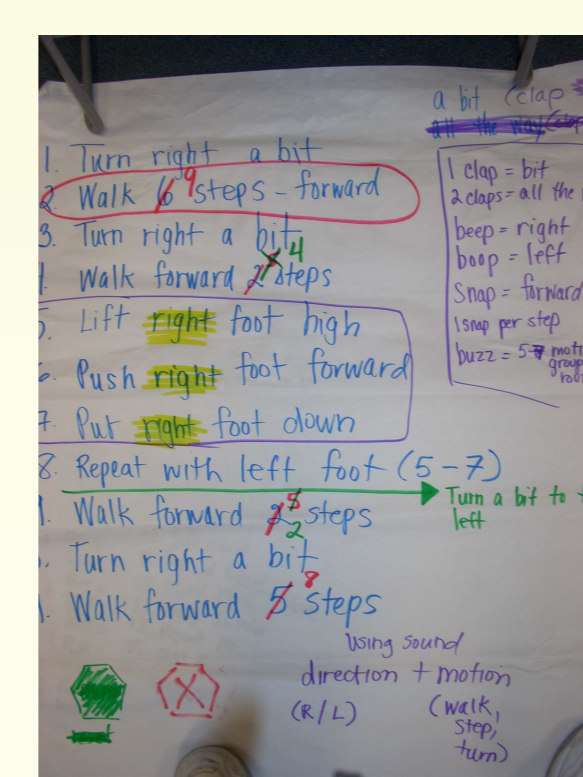 a bit (clap
all the way (clap
1. Turn right a bit
2. Walk 6 9 steps - forward
3. Turn right a bit
Walk forward 2 4 steps
5. Lift right foot high
6. Push right foot forward
7. Put right foot down
8. Repeat with left foot (5-7)
Turn a bit to
left
Walk forward 2 5 2 steps
Turn right a bit
Walk forward 5 8 steps
1 clap = bit
2 claps = all the
beep = right
boop = left
Snap = forward
1 snap per step
buzz = 5-7 moti
group
Using sound
direction + motion
(R/L) (walk,
step,
turn)